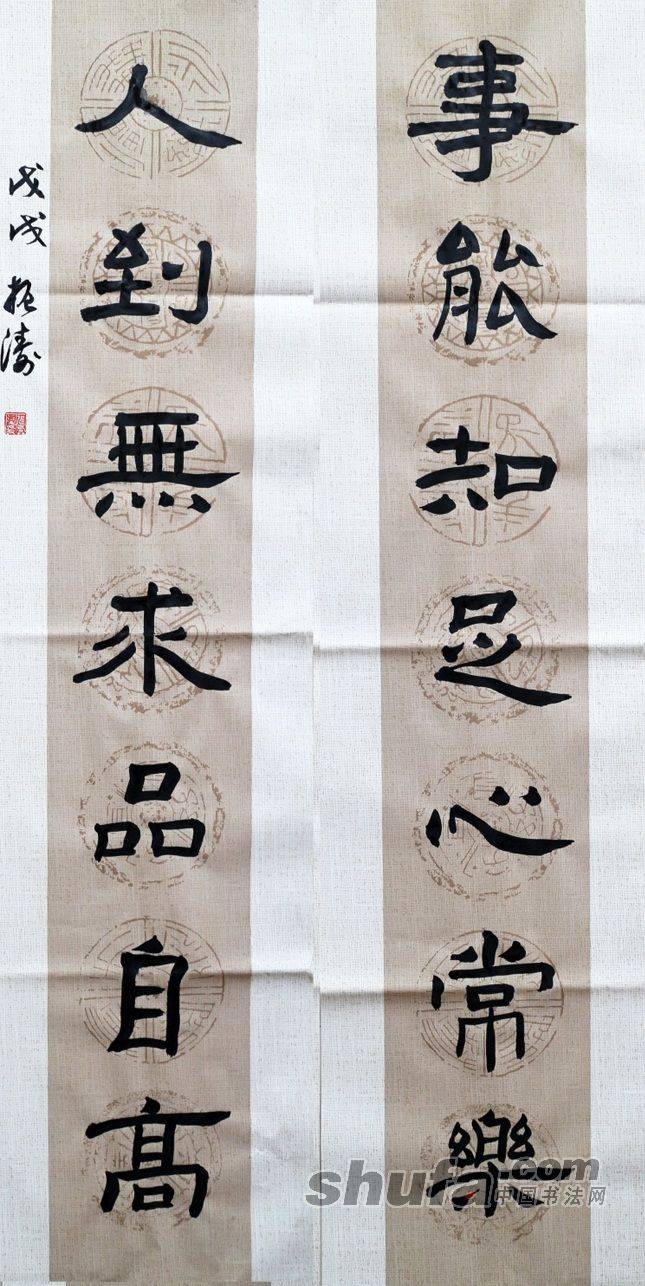 事能知足心常樂
人到無求品自高
戊戌 振濤
shufa.com
中国书法网